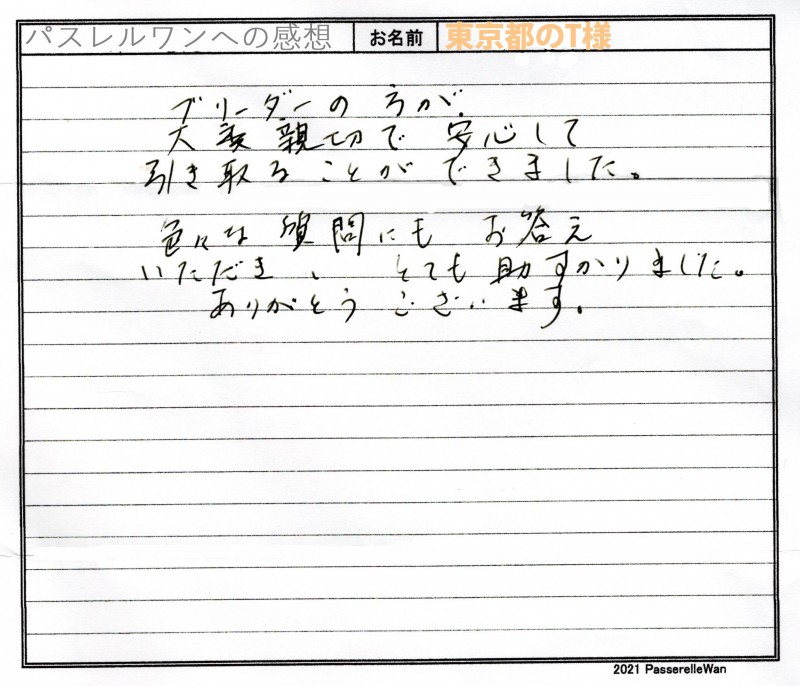 パスレルワンへの感想 お名前 東京都のT様
ブリーダーの方が
大変親切で 安心して
引き取ることができました。
色々な質問にも お答え
いただき、 とても助すかりました。
ありがとうございます。
2021 PasserelleWan